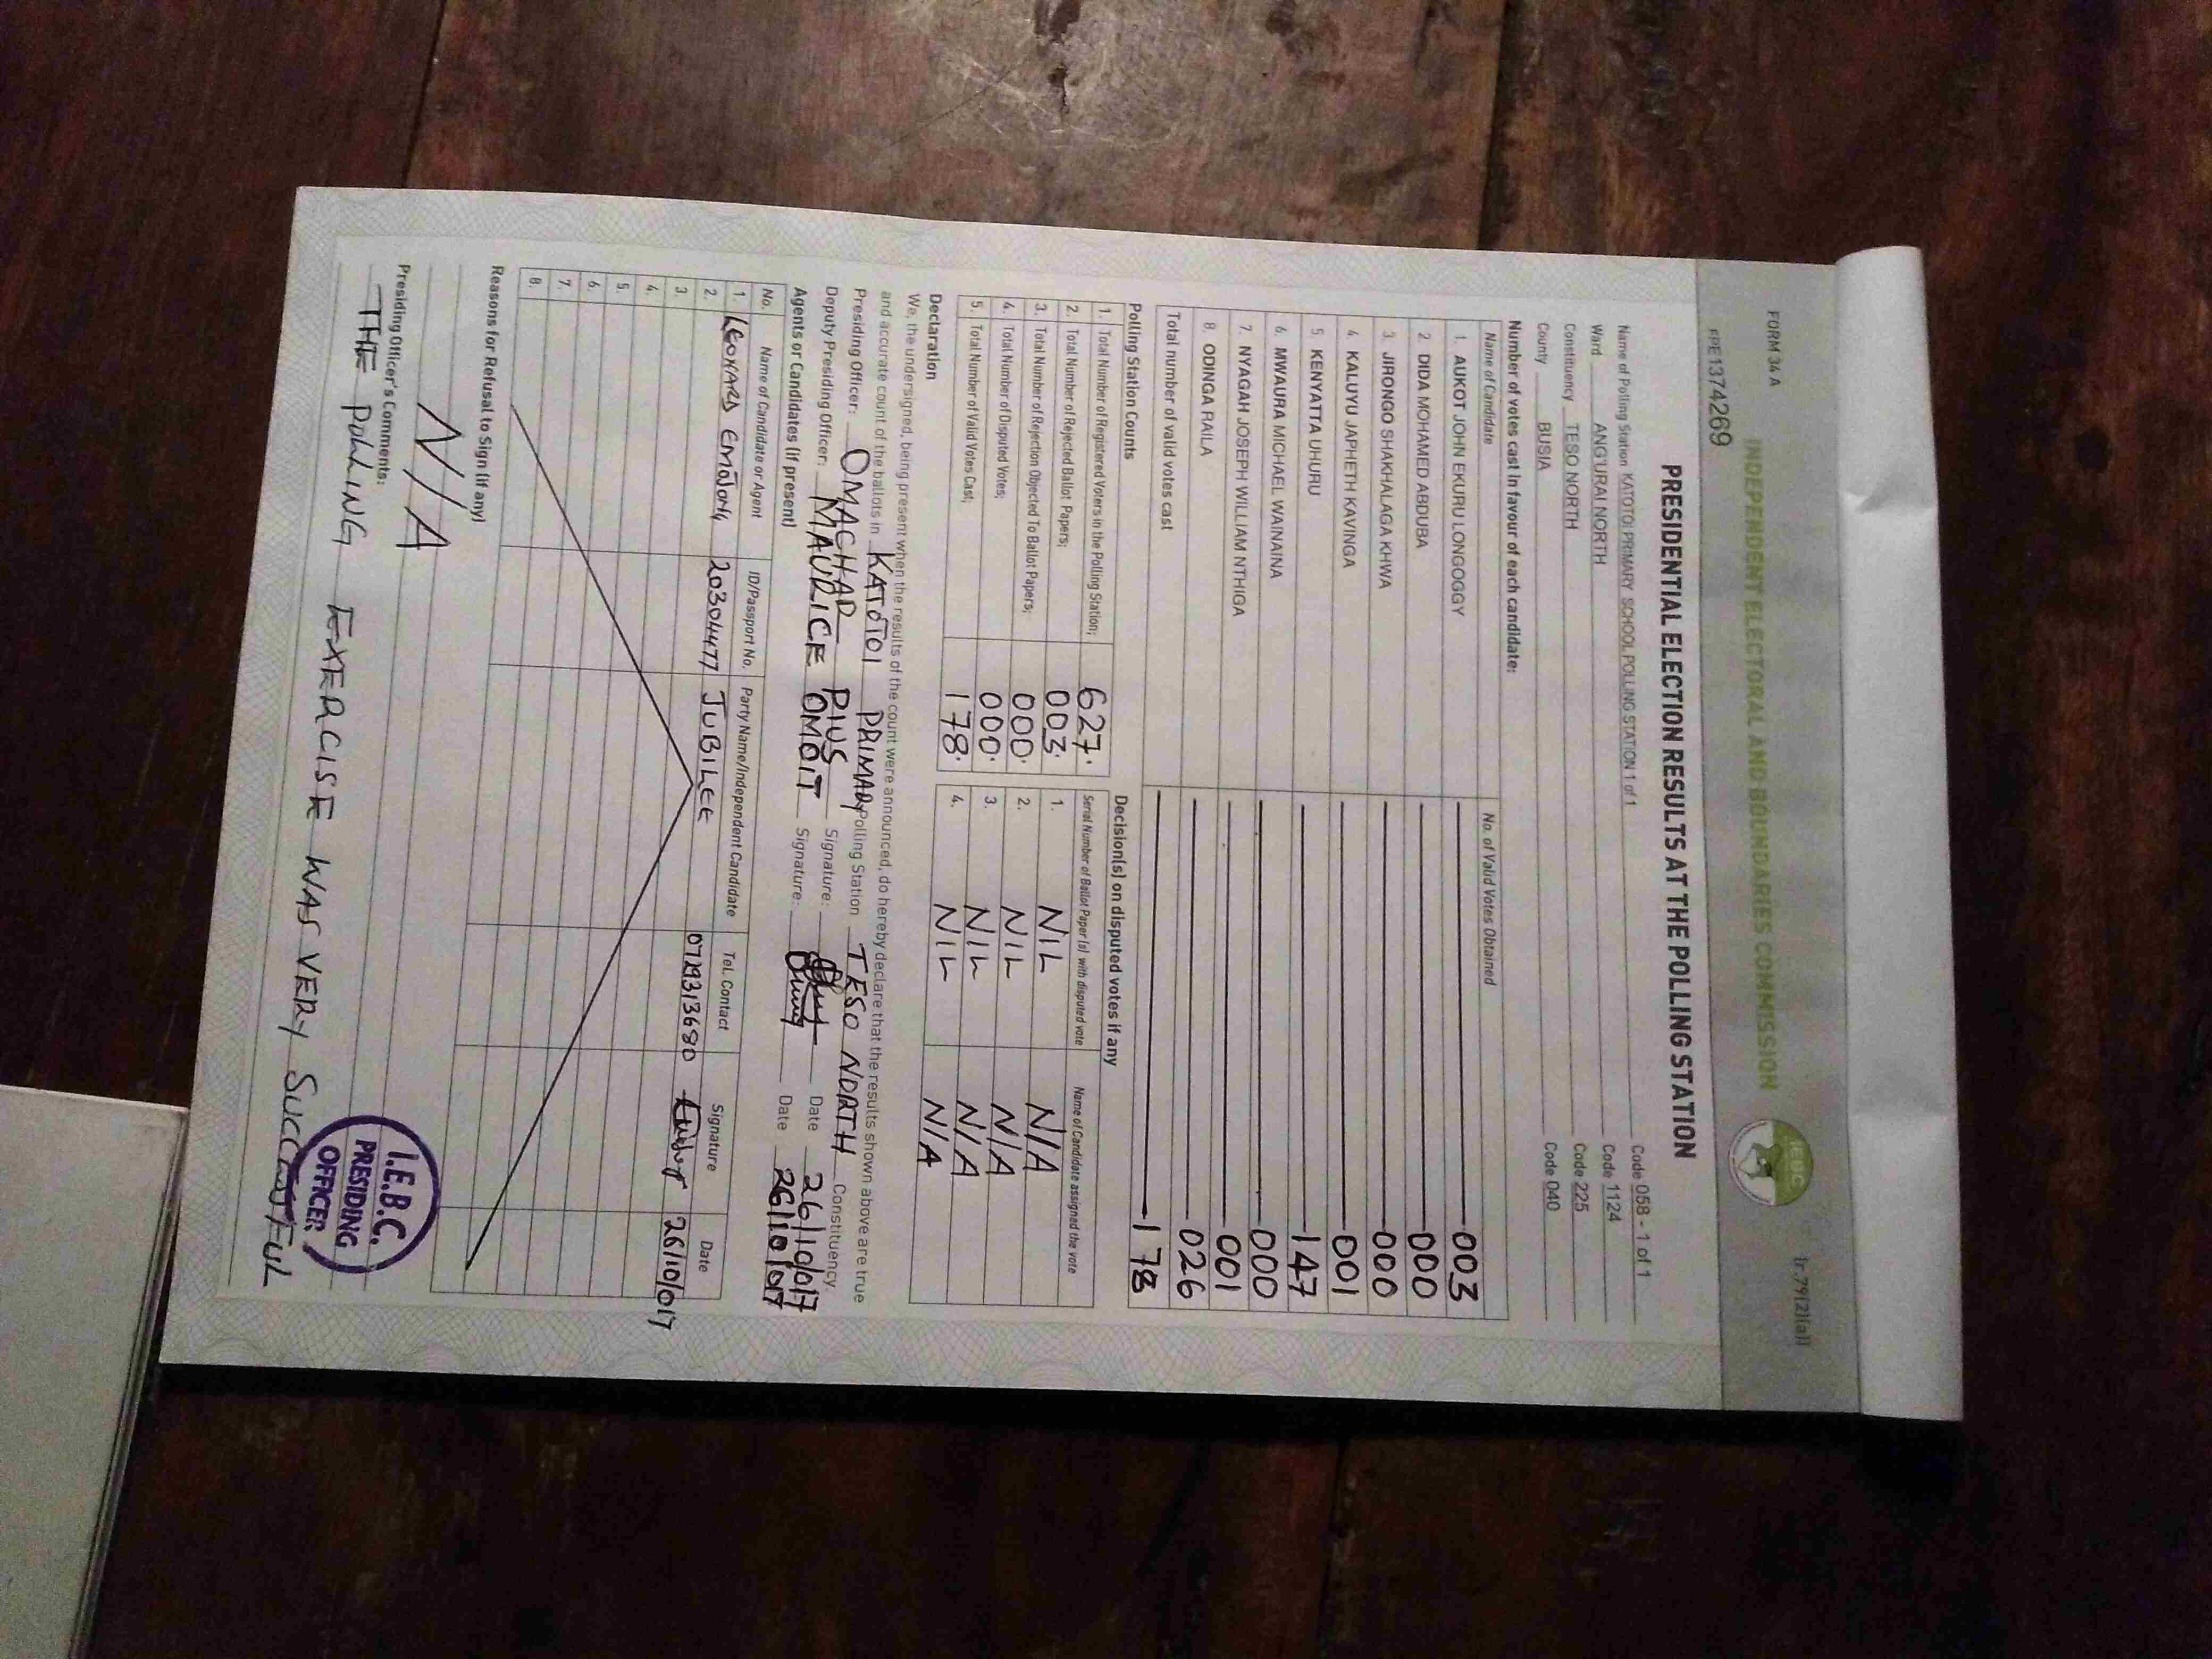 FORM 34 A
(r.79(2)(a))
INDEPENDENT ELECTORAL AND BOUNDARIES COMMISSION
IEBC
FPE1374269
PRESIDENTIAL ELECTION RESULTS AT THE POLLING STATION
Name of Polling Station KATOTOI PRIMARY SCHOOL POLLING STATION 1 of 1 Code 058 - 1 of 1
Ward ANG'URAI NORTH Code 1124
Constituency TESO NORTH Code 225
County BUSIA Code 040
Number of votes cast in favour of each candidate:
Name of Candidate No. of Valid Votes Obtained
1. AUKOT JOHN EKURU LONGOGGY 003
2. DIDA MOHAMED ABDUBA 000
3. JIRONGO SHAKHALAGA KHWA 000
4. KALUYU JAPHETH KAVINGA 001
5. KENYATTA UHURU 147
6. MWAURA MICHAEL WAINAINA 000
7. NYAGAH JOSEPH WILLIAM NTHIGA 001
8. ODINGA RAILA 026
Total number of valid votes cast 178
Polling Station Counts
1. Total Number of Registered Voters in the Polling Station; 627.
2. Total Number of Rejected Ballot Papers; 003.
3. Total Number of Rejection Objected To Ballot Papers; 000.
4. Total Number of Disputed Votes; 000.
5. Total Number of Valid Votes Cast; 178.
Decision(s) on disputed votes if any
Serial Number of Ballot Paper (s) with disputed vote Name of Candidate assigned the vote
1. NIL N/A
2. NIL N/A
3. NIL N/A
4. NIL N/A
Declaration
We, the undersigned, being present when the results of the count were announced, do hereby declare that the results shown above are true
and accurate count of the ballots in KATOTOI PRIMARY Polling Station TESO NORTH Constituency.
Presiding Officer: OMACHAR PIUS Signature: Date 26/10/017
Deputy Presiding Officer: MAURICE OMOIT Signature: Date 26/10/017
Agents or Candidates (if present)
No. Name of Candidate or Agent ID/Passport No. Party Name/Independent Candidate Tel. Contact Signature Date
1. LEONARD 20304477 JUBILEE 0729313680 26/10/017
2.
3.
4.
5.
6.
7.
8.
Reasons for Refusal to Sign (if any)
N/A
Presiding Officer's Comments:
THE POLLING EXERCISE WAS VERY SUCCESSFUL
I.E.B.C.
PRESIDING
OFFICER